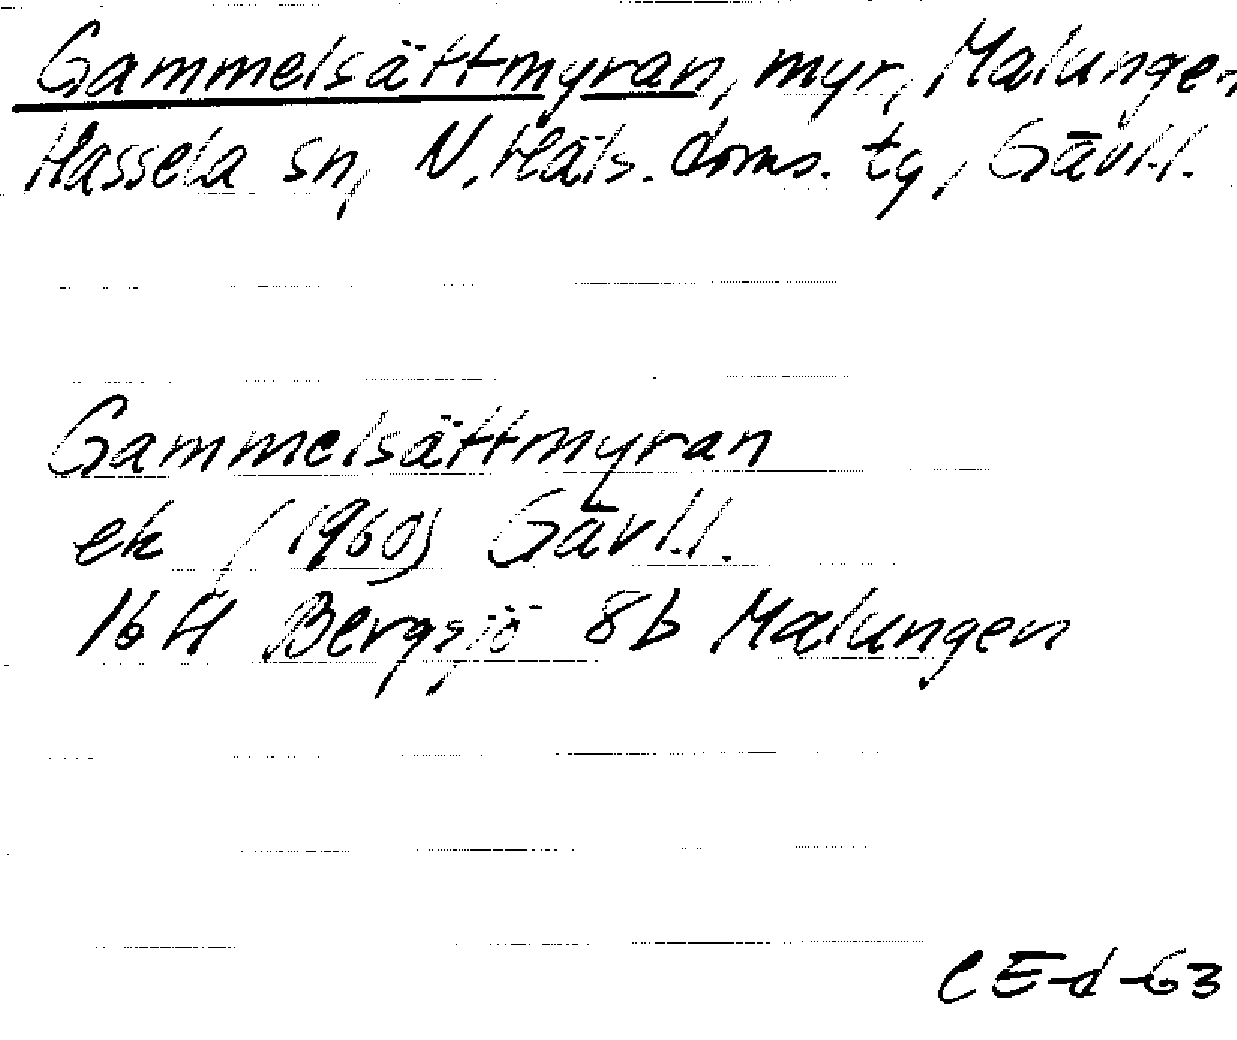 Gammelsättmyran, myr, Malungen,
Hassela sn, N. Häls. doms. tg, Gävl.l.
Gammelsättmyran
ek (1960) Gävl.l.
16H Bergsjö 8b Malungen
CE-d-63